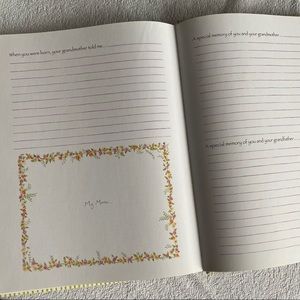 When you were born, your grandmother told me...
My Mom...
A special memory of you and your grandmother...
A special memory of you and your grandfather...